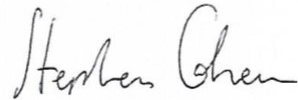 Stephen Cohen